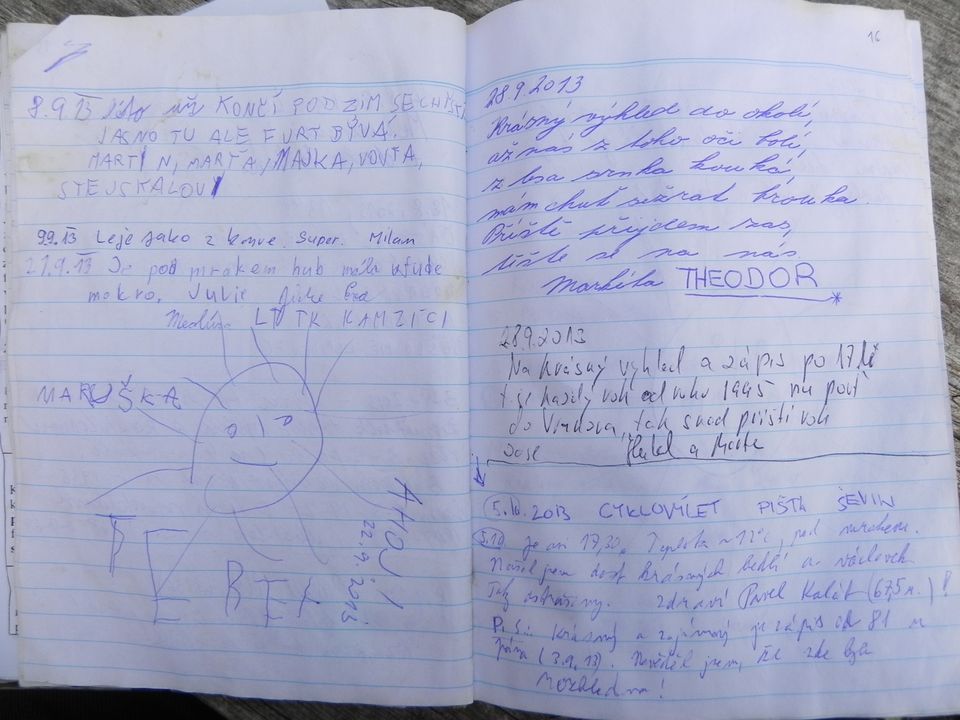 8.9.13 léto už KONČÍ PODZIM SE CHYSTÁ
JASNO TU ALE FURT BÝVÁ.
MARTIN, MARŤA, MAJKA, VOJTA,
STEJSKALOVI
9.9.13 Leje jako z konve. Super. Milan
21.9.13 Je pod mrakem hub málo všude
mokro. Julie
LTTK KAMZÍCI
MARUŠKA
AHOJ!
22.9.2013
16
28.9.2013
Krásný výhled do okolí,
až nás z toho oči bolí,
z lesa srnka kouká,
mám chuť sežrat brouka.
Příště přijdem zas,
těšte se na nás
Markéta THEODOR
28.9.2013
Na krásný výhled a zápis po 17 let
t.j. každý rok od roku 1995 na pouť
do Vranova, tak snad příští rok
zase
5.10.2013 CYKLOVÍLET PIŠTA ŠEVIN
5.10 je asi 17,30. Teplota 12°C, pod mrakem.
Našel jsem dost krásných bedlí a václavek.
Taky ostružiny. Zdraví Pavel Kalát (67,5 r.)!
P.S.: Krásný a zajímavý je zápis od 81 r
(3.9.13). Nevěděl jsem, že zde byla
rozhledna!